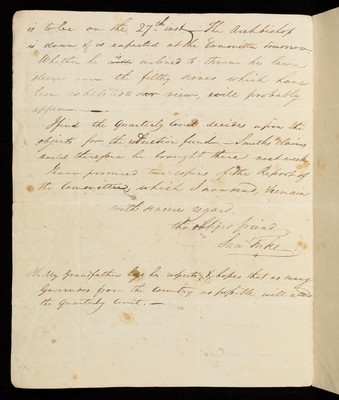 is to be on the 27th inst. The Archbishop
is down & is expected at the Committee tomorrow
Whether he is inclined to throw his lawn
sleeves over the filthy scenes which have
been exhibited to view, will probably
appear. —
I find the Quarterly Court decides upon the
objects for the fund — Smith's claims
could therefore be brought there next week
I have procured two copies of the Report of
the Committee, which I now send, & remain
with sincere regard
thy obliged friend
Saml Tuke
My Grandfather begs his respects, & hopes that as many
Governors from the country as possible will attend
the Quarterly Court. —